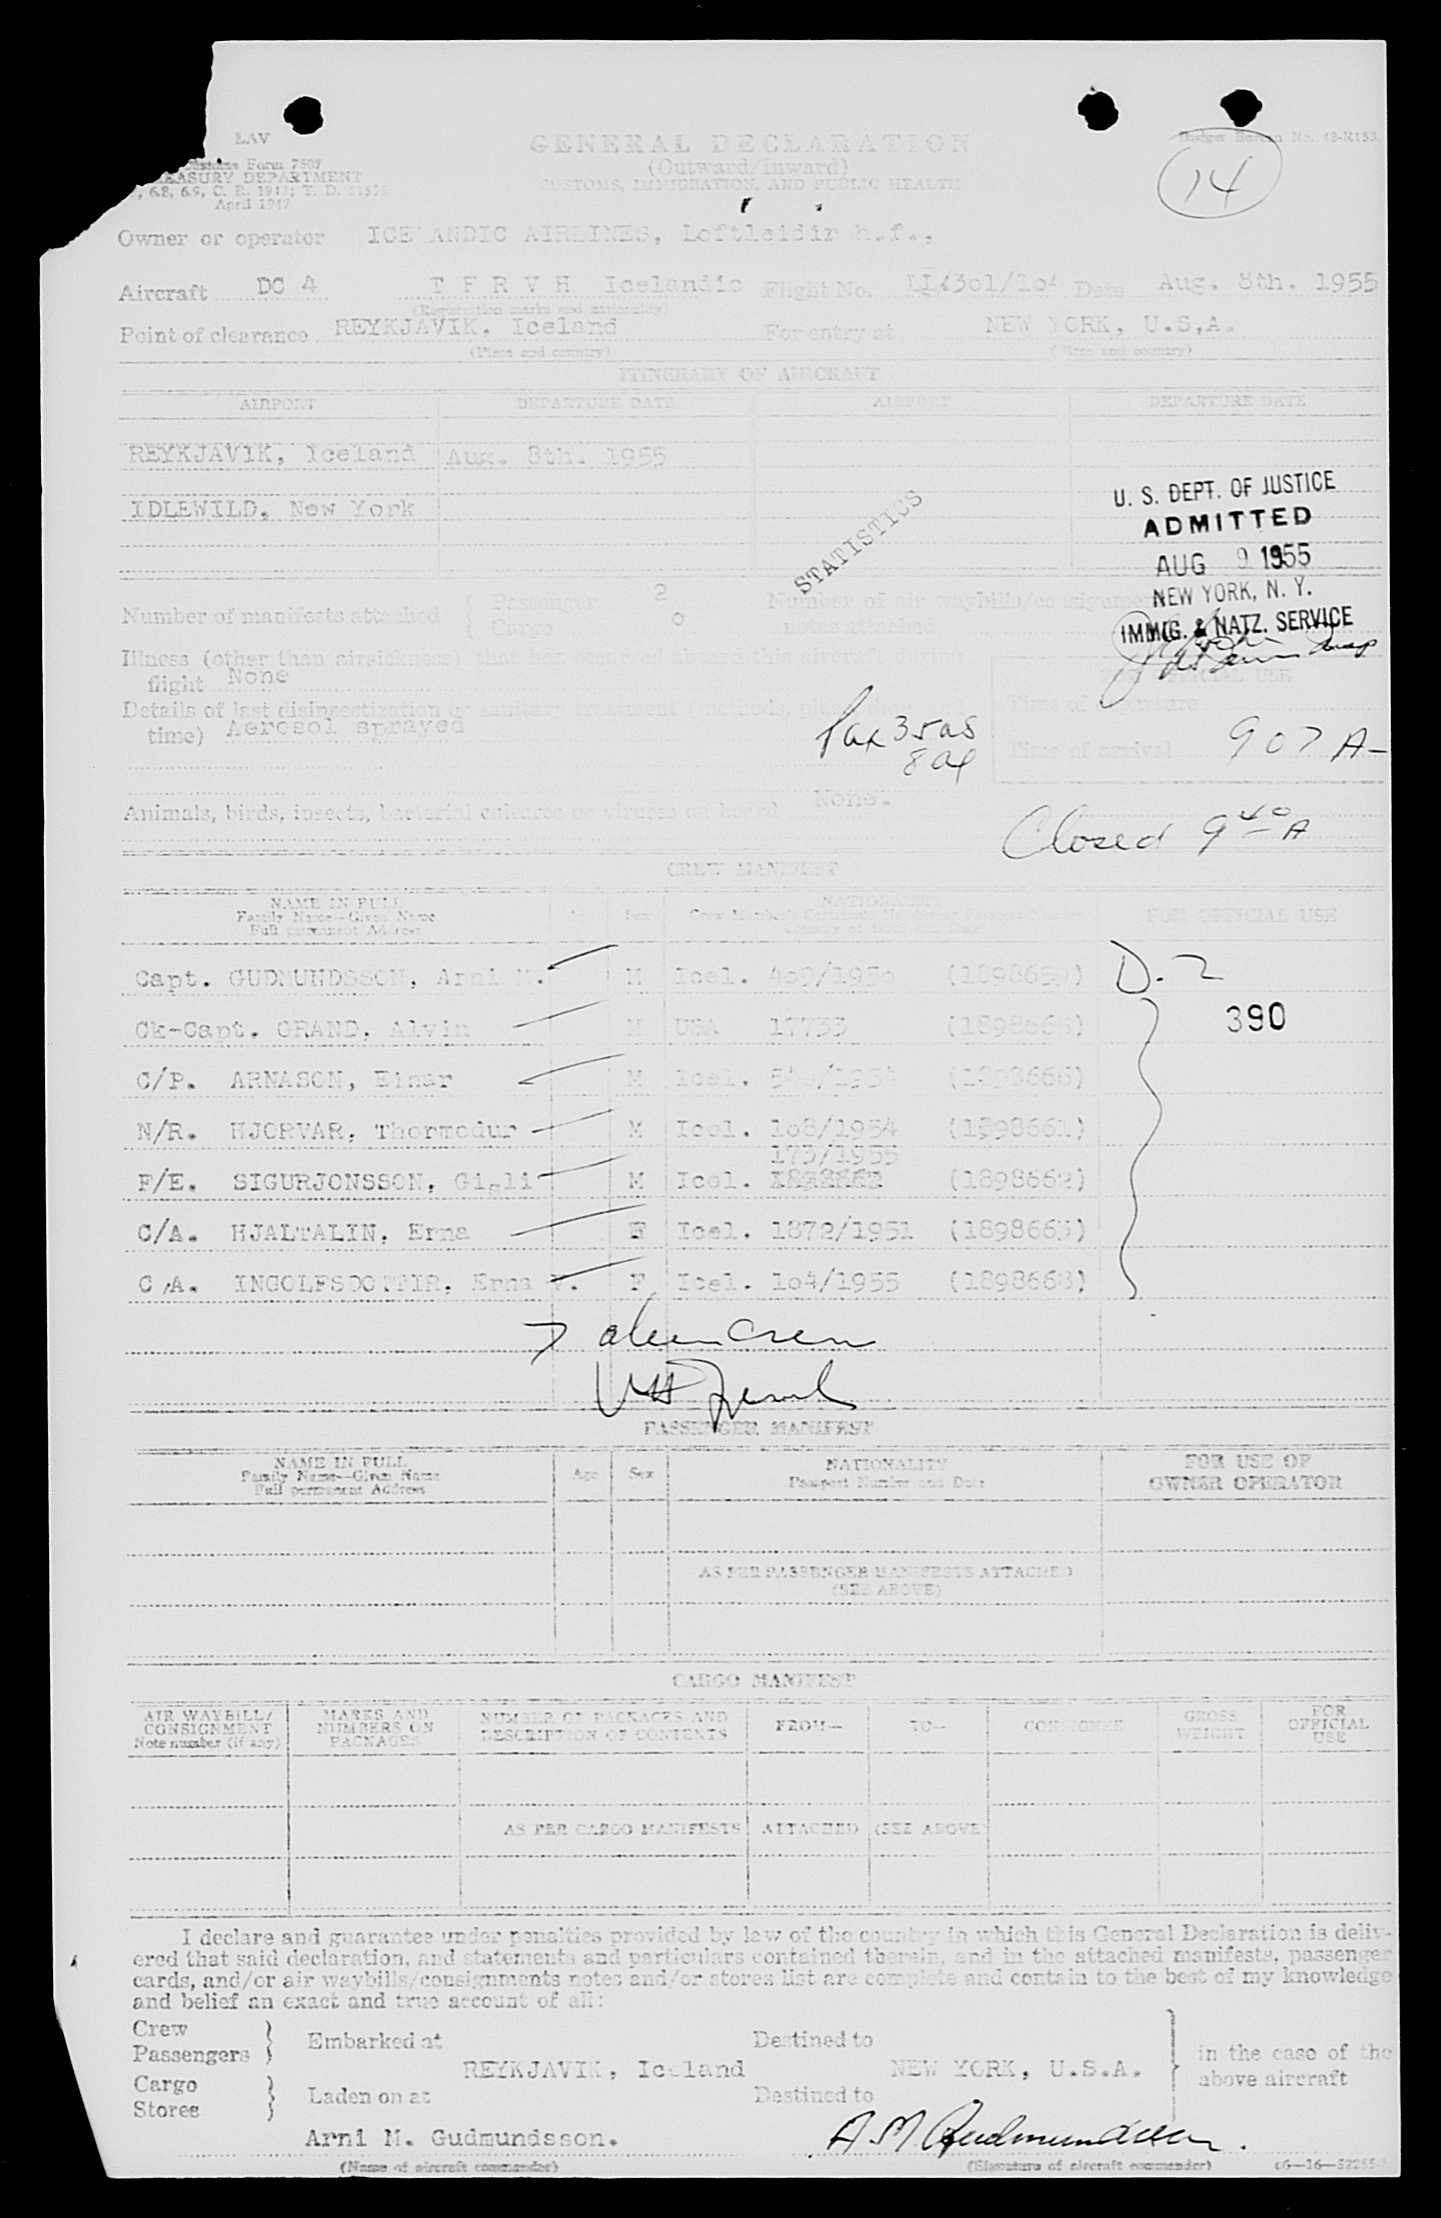 LAV
GENERAL DECLARATION
(Outward/Inward)
CUSTOMS, IMMIGRATION, AND PUBLIC HEALTH
Customs Form 7507
TREASURY DEPARTMENT
April 1947
14
Owner or operator ICELANDIC AIRLINES, Loftleidir h.f.,
Aircraft DC 4 T F R V H Icelandic Flight No. Date Aug. 8th. 1955
(Registration marks and nationality)
Point of clearance REYKJAVIK, Iceland For entry at NEW YORK, U.S,A.
(Place and country) (Place and country)
ITINERARY OF AIRCRAFT
AIRPORT DEPARTURE DATE AIRPORT DEPARTURE DATE
REYKJAVIK, Iceland Aug. 8th. 1955
IDLEWILD, New York
STATISTICS
U. S. DEPT. OF JUSTICE
ADMITTED
AUG 9 1955
NEW YORK, N. Y.
IMMIG. & NATZ. SERVICE
Number of manifests attached { Passenger 2 Number of air waybills/consignment
Cargo 0 notes attached
Illness (other than airsickness) that has occurred aboard this aircraft during
flight None
FOR OFFICIAL USE
Details of last disinsectization or sanitary treatment (methods, place, date, and
time) Aerosol sprayed
Time of departure
Time of arrival 907 A-
Pax 35 as
8 al
Animals, birds, insects, bacterial cultures or viruses on board None.
Closed 9 40 A
CREW MANIFEST
NAME IN FULL
Family Name—Given Name
Full permanent Address
Age Sex NATIONALITY FOR OFFICIAL USE
Capt. GUDMUNDSSON, Arni M. M Icel. D-2
Ck-Capt. GRAND, Alvin M USA 17733 390
C/P. ARNASON, Einar M Icel.
N/R. HJORVAR, Thormodur M Icel. 108/1954 (1898661)
173/1955
F/E. SIGURJONSSON, Gisli M Icel. (1898662)
C/A. HJALTALIN, Erna F Icel. 1872/1951 (1898663)
C/A. INGOLFSDOTTIR, Erna F Icel. 104/1955 (1898668)
7 alien crew
PASSENGER MANIFEST
NAME IN FULL
Family Name—Given Name
Full permanent Address
Age Sex NATIONALITY
Passport Number and Date
FOR USE OF
OWNER OPERATOR
AS PER PASSENGER MANIFESTS ATTACHED
(SEE ABOVE)
CARGO MANIFEST
AIR WAYBILL/
CONSIGNMENT
Note number (if any)
MARKS AND
NUMBERS ON
PACKAGES
NUMBER OF PACKAGES AND
DESCRIPTION OF CONTENTS
FROM— TO— CONSIGNEE
GROSS
WEIGHT
FOR
OFFICIAL
USE
AS PER CARGO MANIFESTS ATTACHED (SEE ABOVE
I declare and guarantee under penalties provided by law of the country in which this General Declaration is deliv-
ered that said declaration, and statements and particulars contained therein, and in the attached manifests, passenger
cards, and/or air waybills/consignments notes and/or stores list are complete and contain to the best of my knowledge
and belief an exact and true account of all:
Crew
Passengers } Embarked at Destined to
REYKJAVIK, Iceland NEW YORK, U.S.A. } in the case of the
above aircraft
Cargo
Stores } Laden on at Destined to
Arni M. Gudmundsson. A M Gudmundsson.
(Name of aircraft commander) (Signature of aircraft commander)